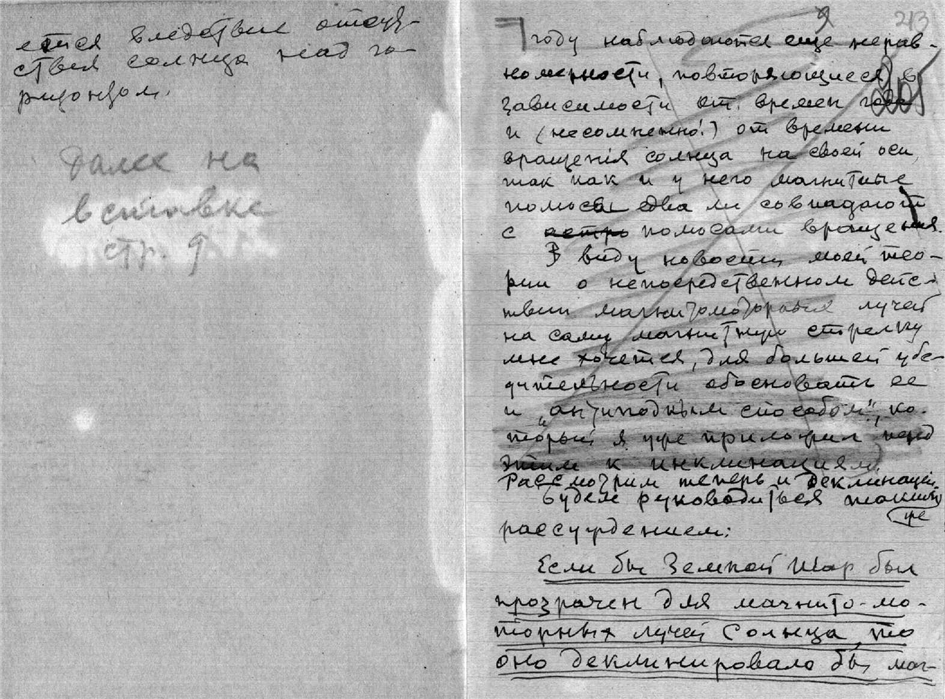 ется вследствие отсут-
ствия солнца над го-
ризонтом.
Далее на
вставке
стр. 9
213
году наблюдаются еще нерав-
номерности, повторяющиеся в
зависимости от времен года
и (несомненно!) от времени
вращенiя солнца на своей оси,
так как и у него магнитные
полюсы едва ли совпадают
с полюсами вращения.
В виду новости моей тео-
рии о непосредственном дейс-
твии магнитомоторных лучей
на саму магнитную стрелку
мне хочется, для большей убе-
дительности обосновать ее
и „антиподным способом", ко-
торый я уже приложил
этим к инклинациям.
Рассмотрим теперь и деклинации.
Будем руководиться таким
же
рассуждением:
Если бы Земной Шар был
прозрачен для магнито-мо-
торных лучей Солнца, то
оно деклинировало бы маг-